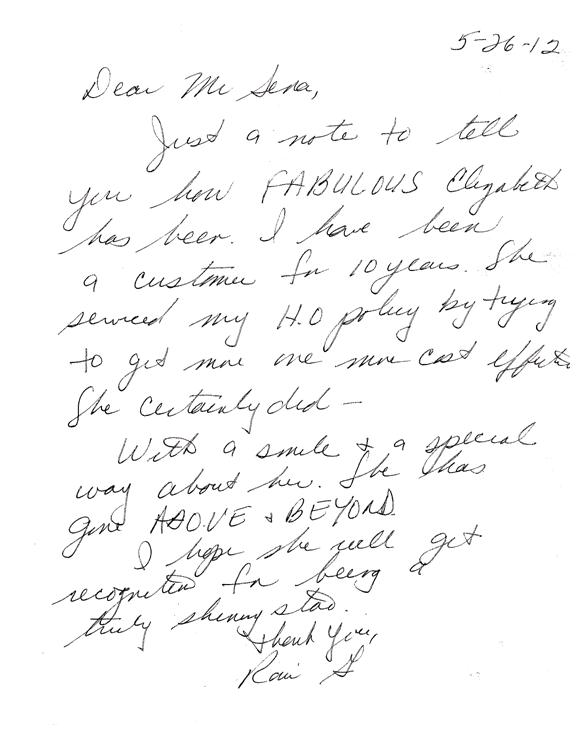 5-26-12
Dear Mr Sena,
Just a note to tell
you how FABULOUS Elizabeth
has been. I have been
a customer for 10 years. She
serviced my H.O policy by trying
to get me one more cost effective
She certainly did –
With a smile & a special
way about her. She has
gone ABOVE & BEYOND.
I hope she will get
recognition for being a
truly shining star.
Thank You,